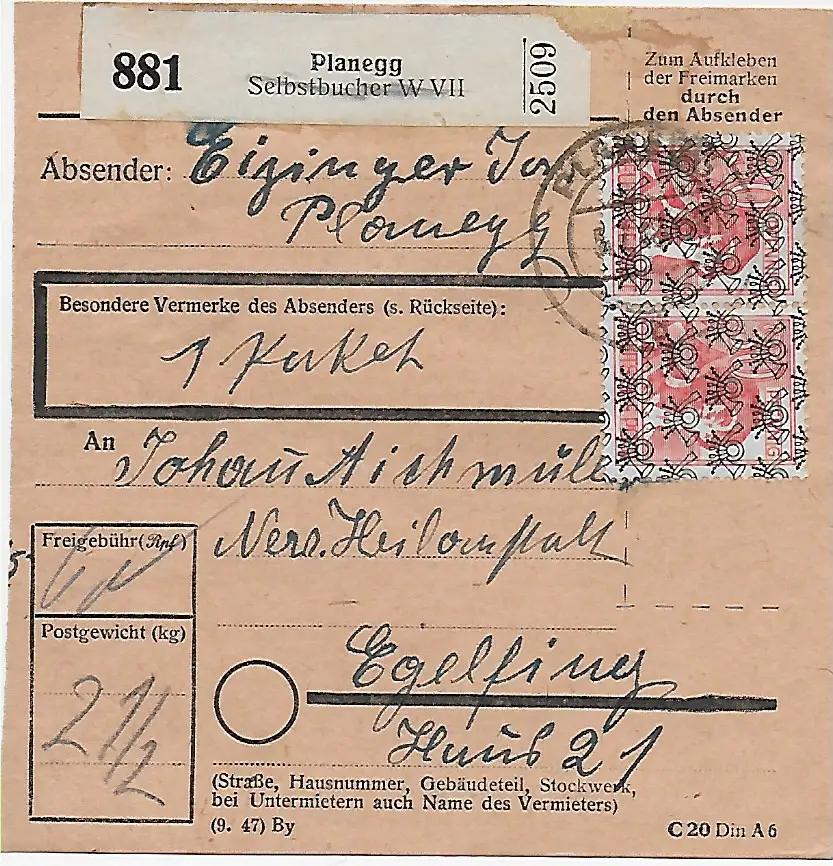 881
Planegg
Selbstbucher W VII
2509
Zum Aufkleben
der Freimarken
durch
den Absender
Absender: Eizinger Jo
Planegg
Besondere Vermerke des Absenders (s. Rückseite):
1 Paket
An Johann Aichmüll
Nerv. Heilanstalt
Freigebühr (Rpf)
Postgewicht (kg)
2 1/2
Egelfing
Haus 21
(Straße, Hausnummer, Gebäudeteil, Stockwerk,
bei Untermietern auch Name des Vermieters)
(9. 47) By
C 20 Din A 6